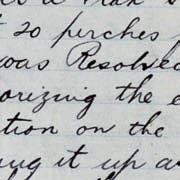 20 perches
was Resolved
orizing the
tion on the
it up